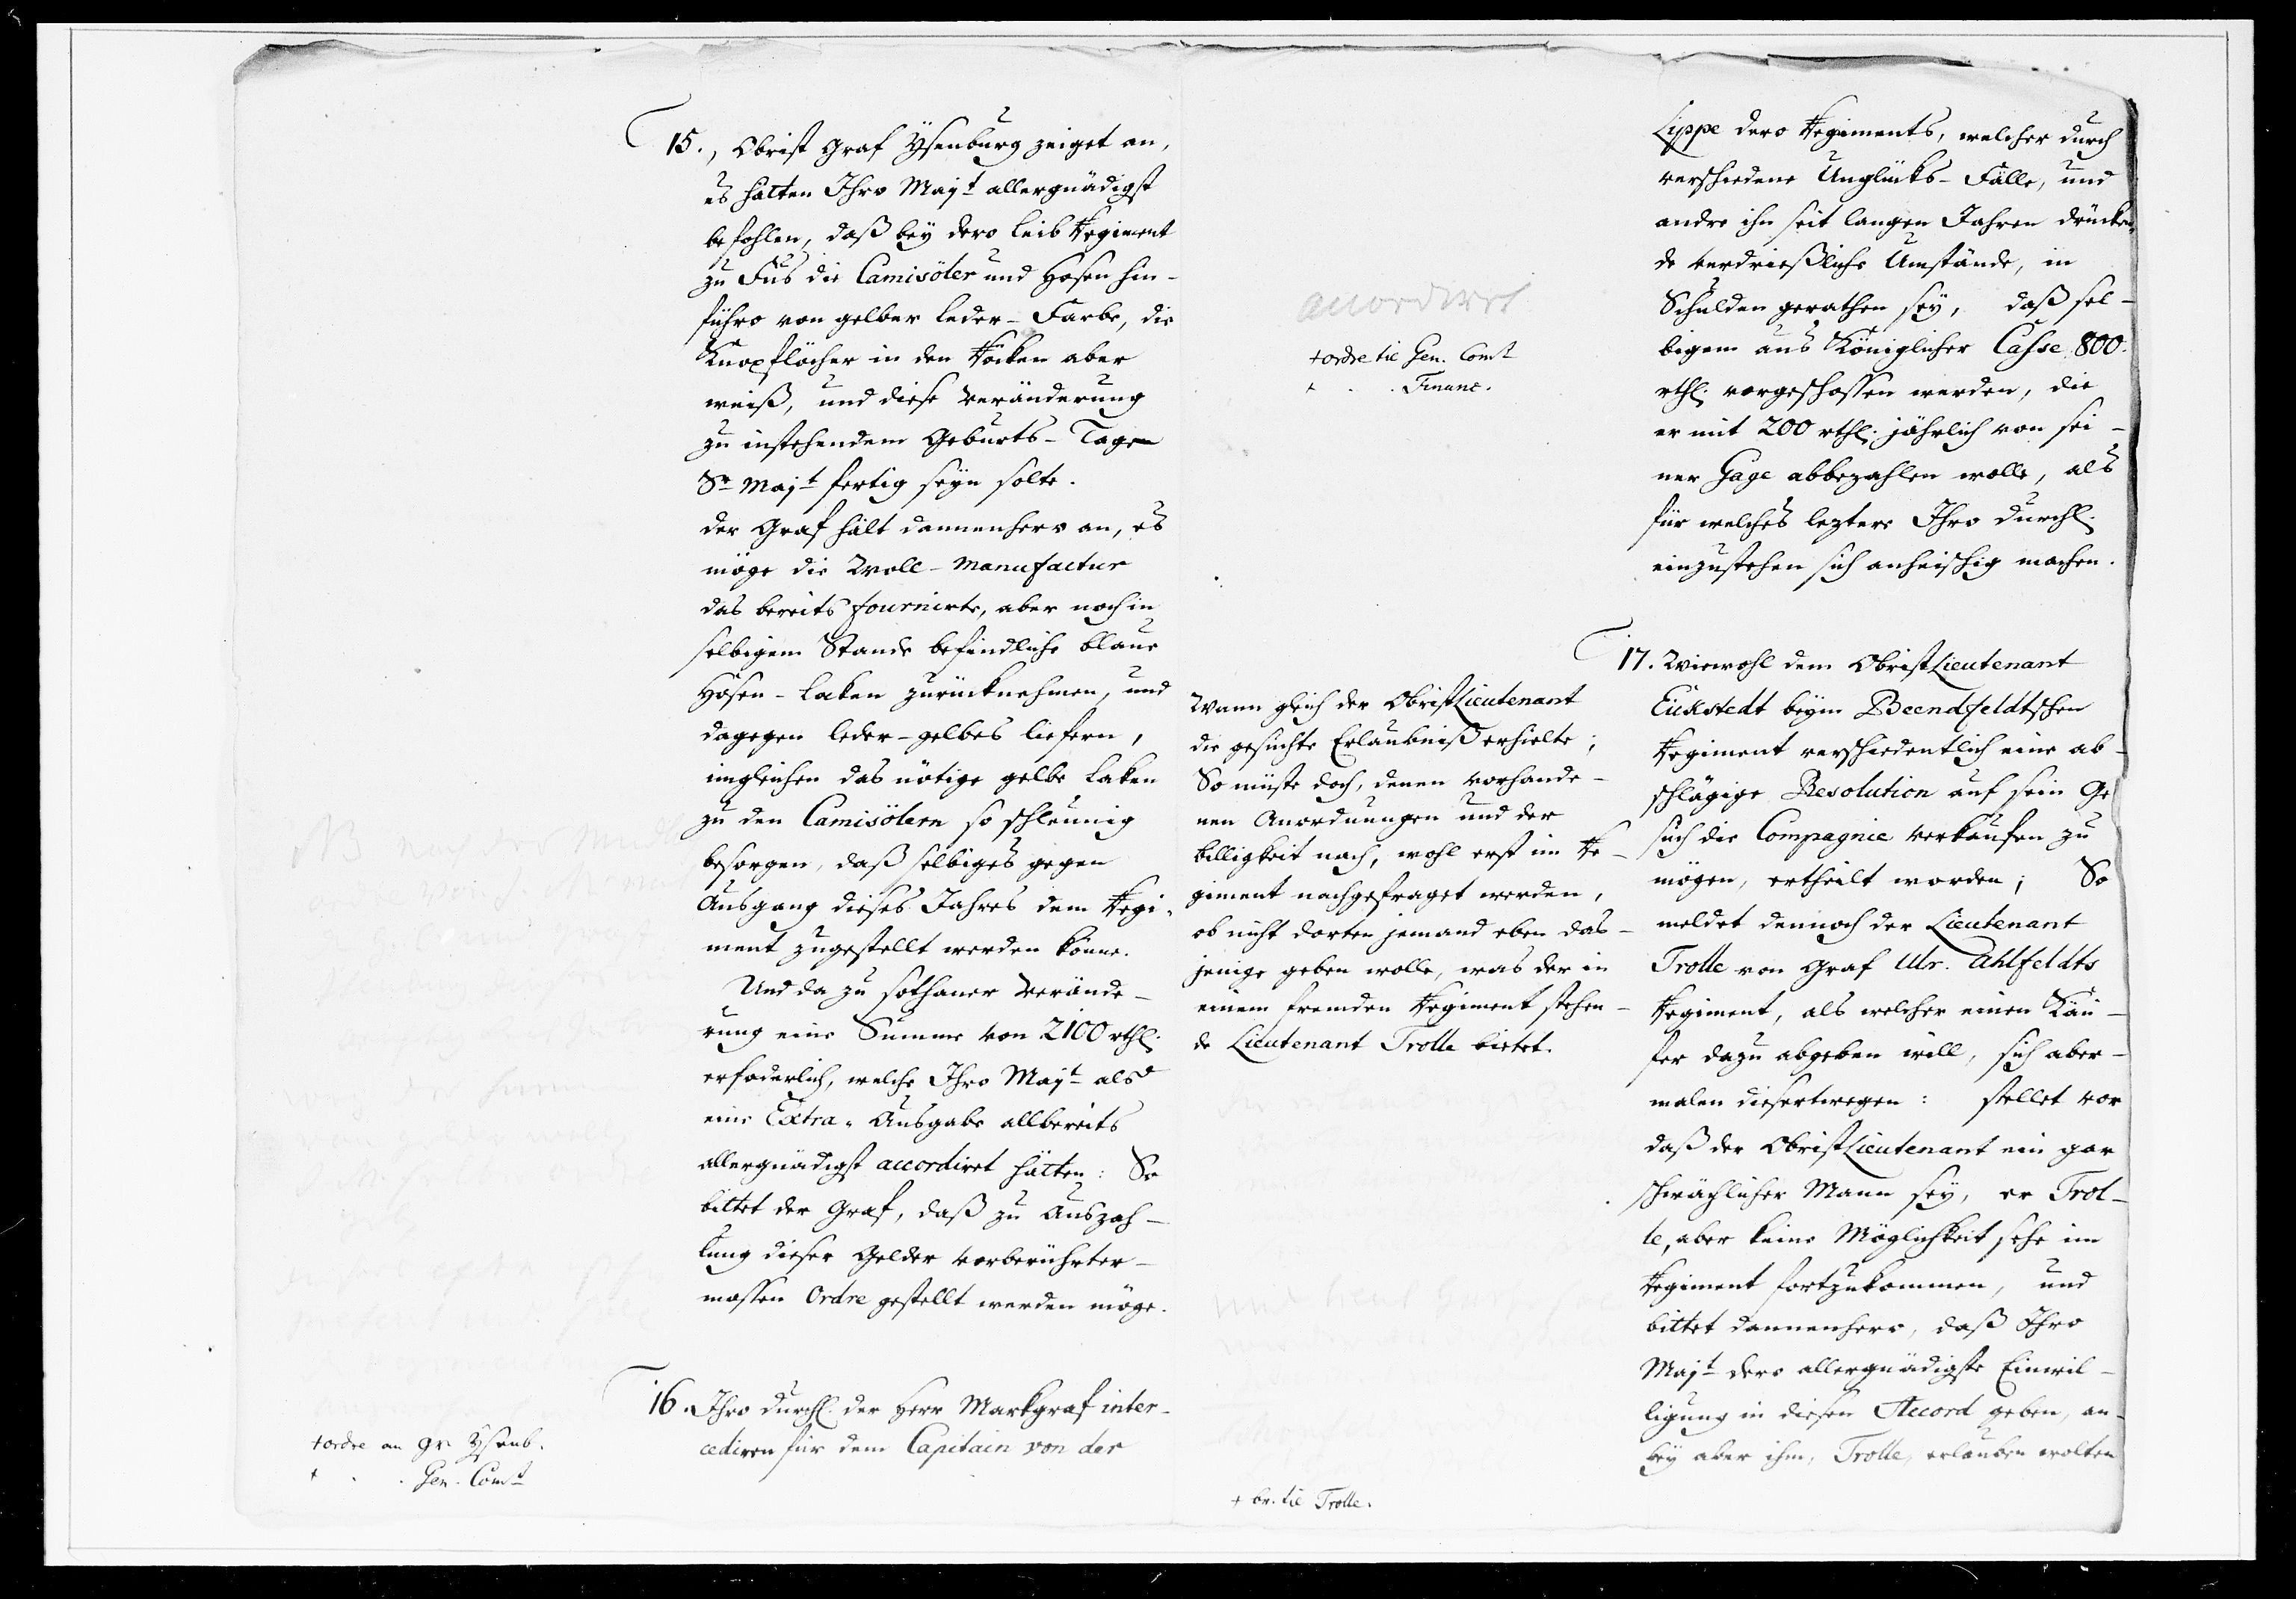 15., Obrist Graf Ysenburg zeiget an,
es hätten Ihro Mayt allergnädigst
befohlen, daß bey dero Leib Regiment
zu Fus die Camisöler und Hosen hin-
führo von gelber Leder-Farbe, die
Knopflöcher in den Röcken aber
weiß, und diese Veränderung
zu instehendem Geburts-Tage
Sr Majt fertig seyn solte.
der Graf hält dannenhero an, es
möge die Woll-Manufactur
das bereits fournirte, aber noch in
selbigem Stande befindliche blaue
Hosen-Laken zurücknehmen, und
dagegen leder-gelbes liefern,
imgleichen das nötige gelbe Laken
zu den Camisölern so schleunig
besorgen, daß selbiges gegen
Ausgang dieses Jahres dem Regi-
ment zugestellt werden könne.
Und da zu sothaner Verände-
rung eine Summe von 2100 rthl.
erfoderlich, welche Ihro Majt als
eine Extra-Ausgabe allbereits
allergnädigst accordiret hätten: So
bittet der Graf, daß zu Auszah-
lung dieser Gelder vorberührter-
massen Ordre gestellt werden möge.
+ordre an gr. Ysenb.
+ . . Gen. Comt
16. Ihro Durchl. der Herr Markgraf inter-
cediren für dem Capitain von der
Lippe dero Regiments, welcher durch
verschiedene Unglücks-Fälle, und
andre ihn seit langen Jahren drücken-
de verdrießliche Umstände, in
Schulden gerathen sey, daß sel-
bigem aus Königlicher Casse 800.
rthl. vorgeschossen werden, die
er mit 200 rthl. jährlich von sei-
ner Gage abbezahlen wolle, als
für welches leztere Ihro Durchl.
einzustehen sich anheischig machen.
accordirt
+ordre til Gen. Comt
+ . . Financ.
17. Wiewohl dem ObristLieutenant
Eickstedt beym Beenfeldtschen
Regiment verschiedentlich eine ab-
schlägige Resolution auf sein Ge
such die Compagnie verkaufen zu
mögen, ertheilt worden; So
meldet dennoch der Lieutenant
Trolle von Graf Ulr. Ahlfeldts
Regiment, als welcher einen Käu-
fer dazu abgeben will, sich aber-
malen diesertwegen: stellet vor
daß der ObristLieutenant ein gar
schwächlicher Mann sey, er Trol-
le, aber keine Möglichkeit sehe im
Regiment fortzukommen, und
bittet dannenhero, daß Ihro
Majt dero allergnädigste Einwil-
ligung in diesen Accord geben, an-
bey aber ihm, Trolle, erlauben wolten
Wann gleich der ObristLieutenant
die gesuchte Erlaubniß erhielte;
So müste doch, denen vorhande-
nen Anordnungen und der
billigkeit nach, wohl erst im Re-
giment nachgefraget werden,
ob nicht dorten jemand eben das-
jenige geben wolle, was der in
einem fremden Regiment stehen-
de Lieutenant Trolle bietet.
+ br. til Trolle.